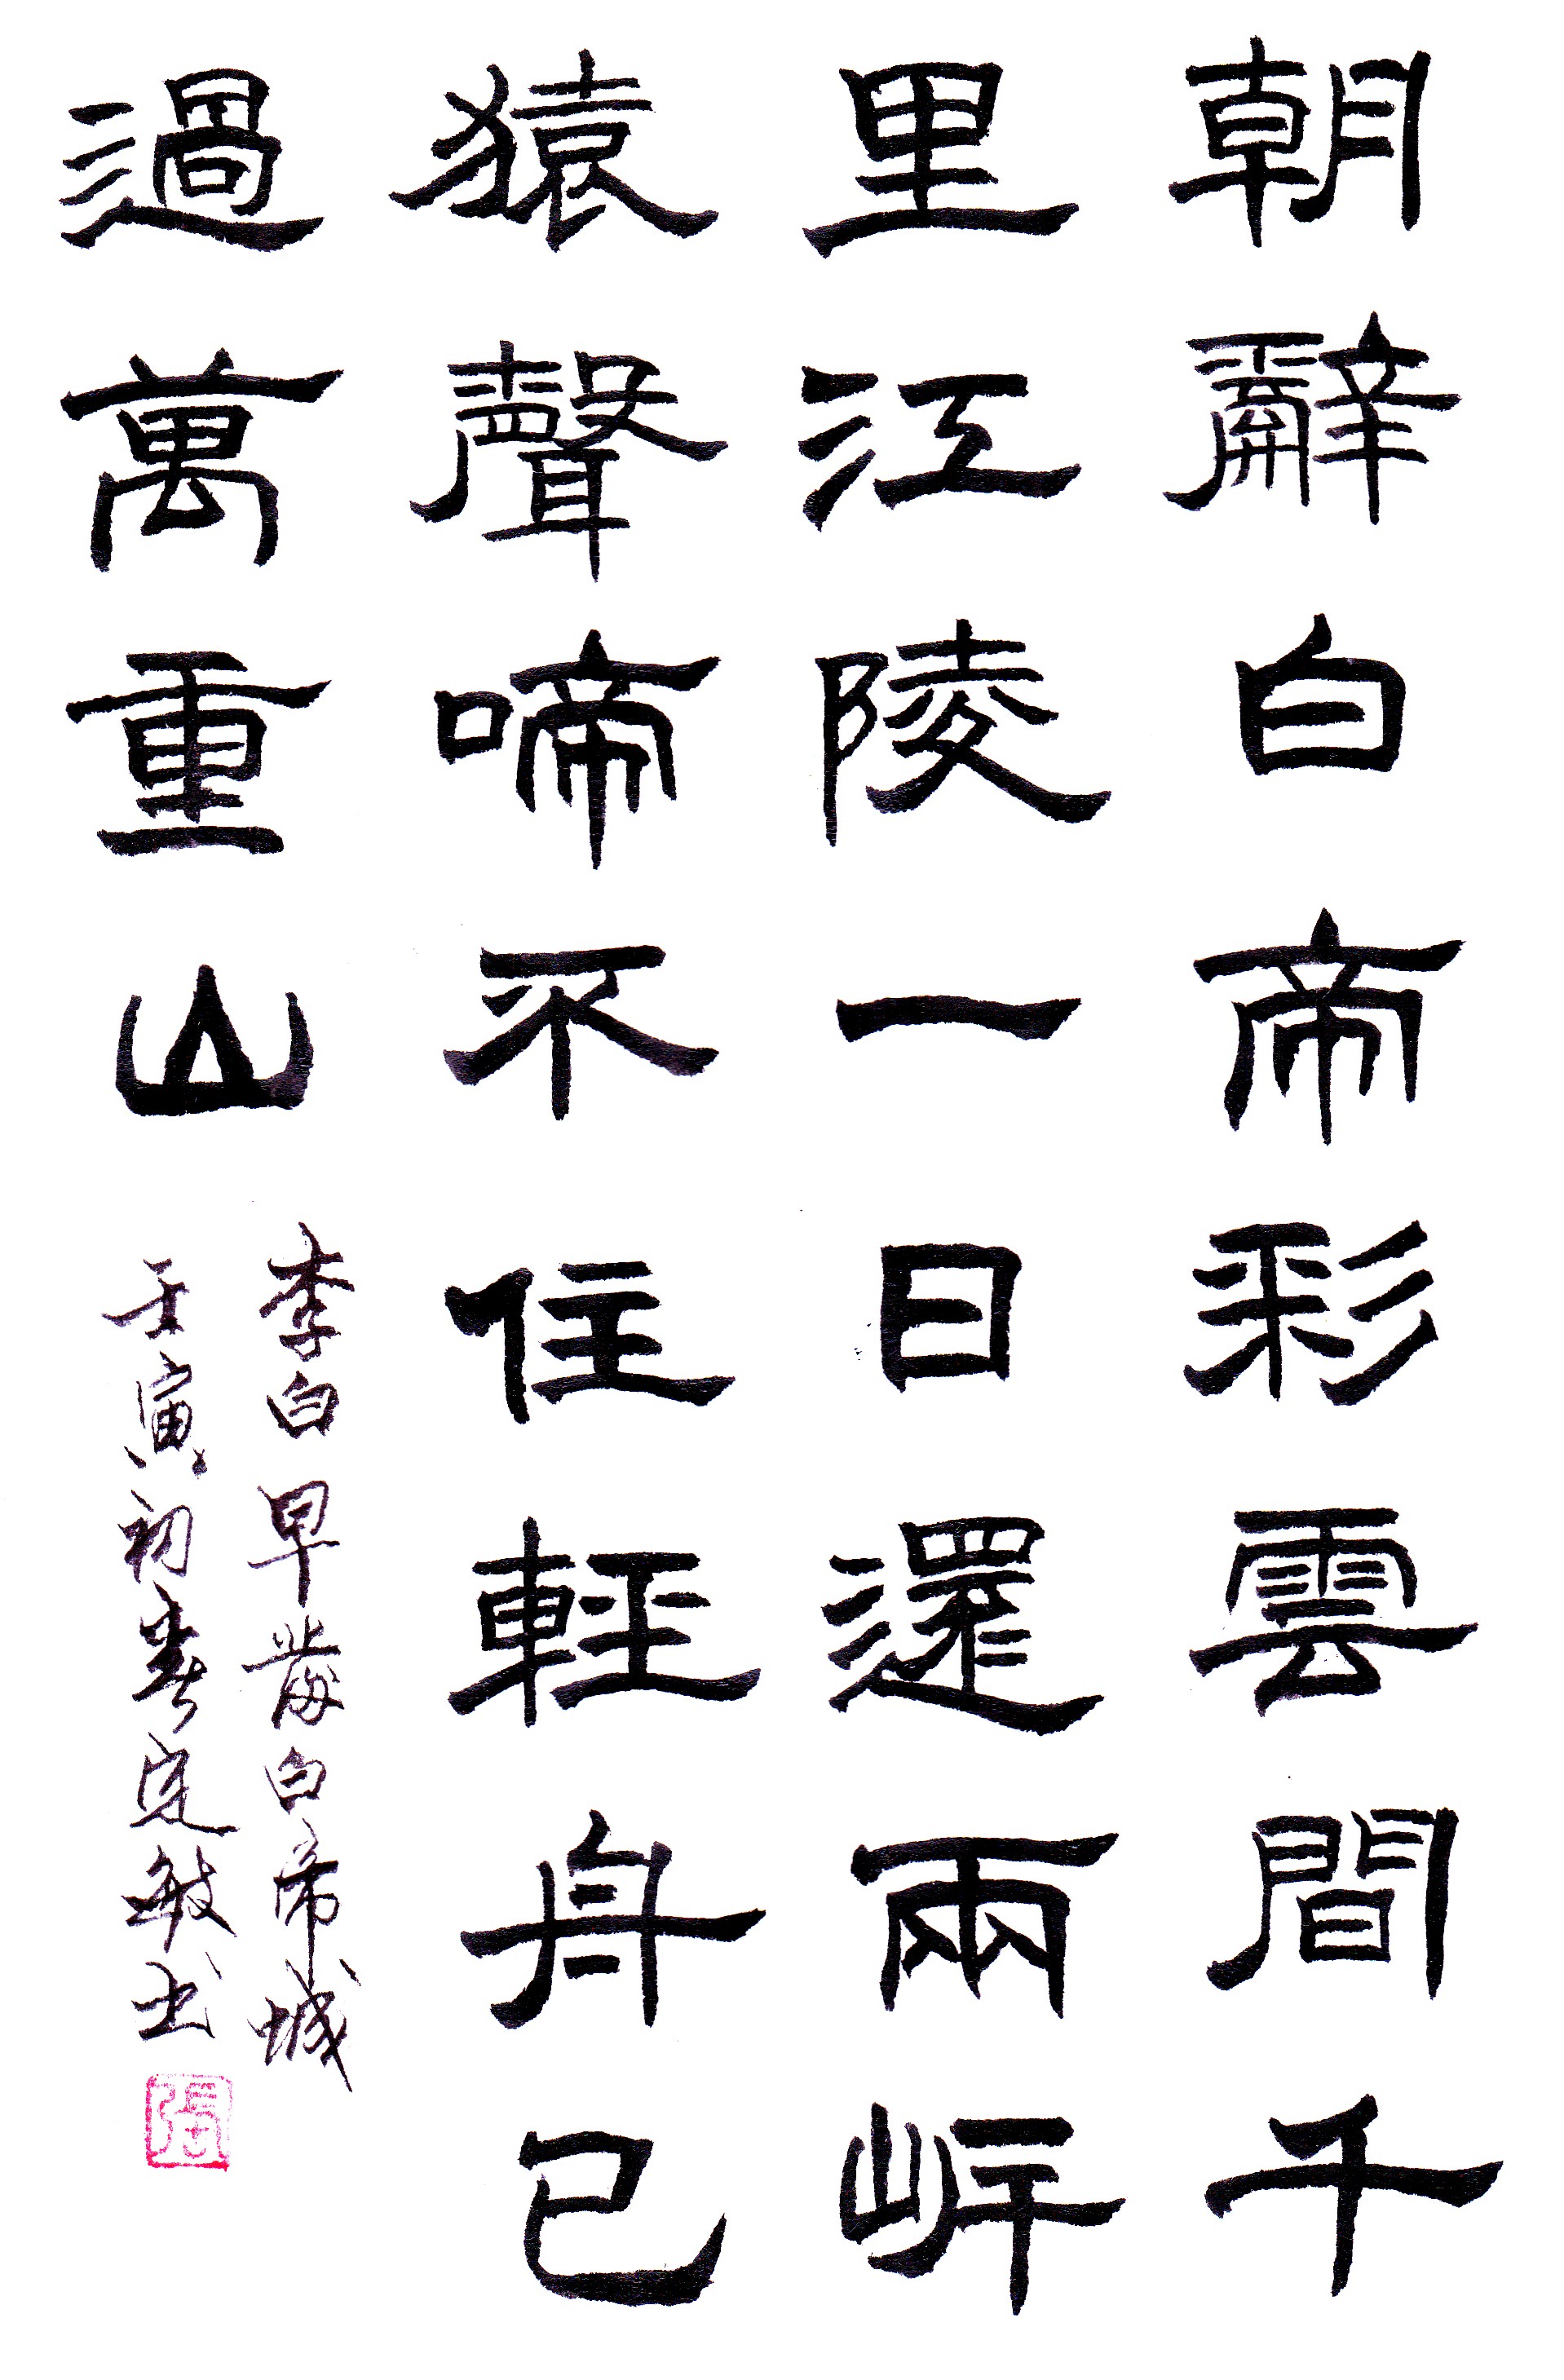 朝辭白帝彩雲間千
里江陵一日還兩岸
猿聲啼不住輕舟已
過萬重山
李白早發白帝城
壬寅初春定敏书
張